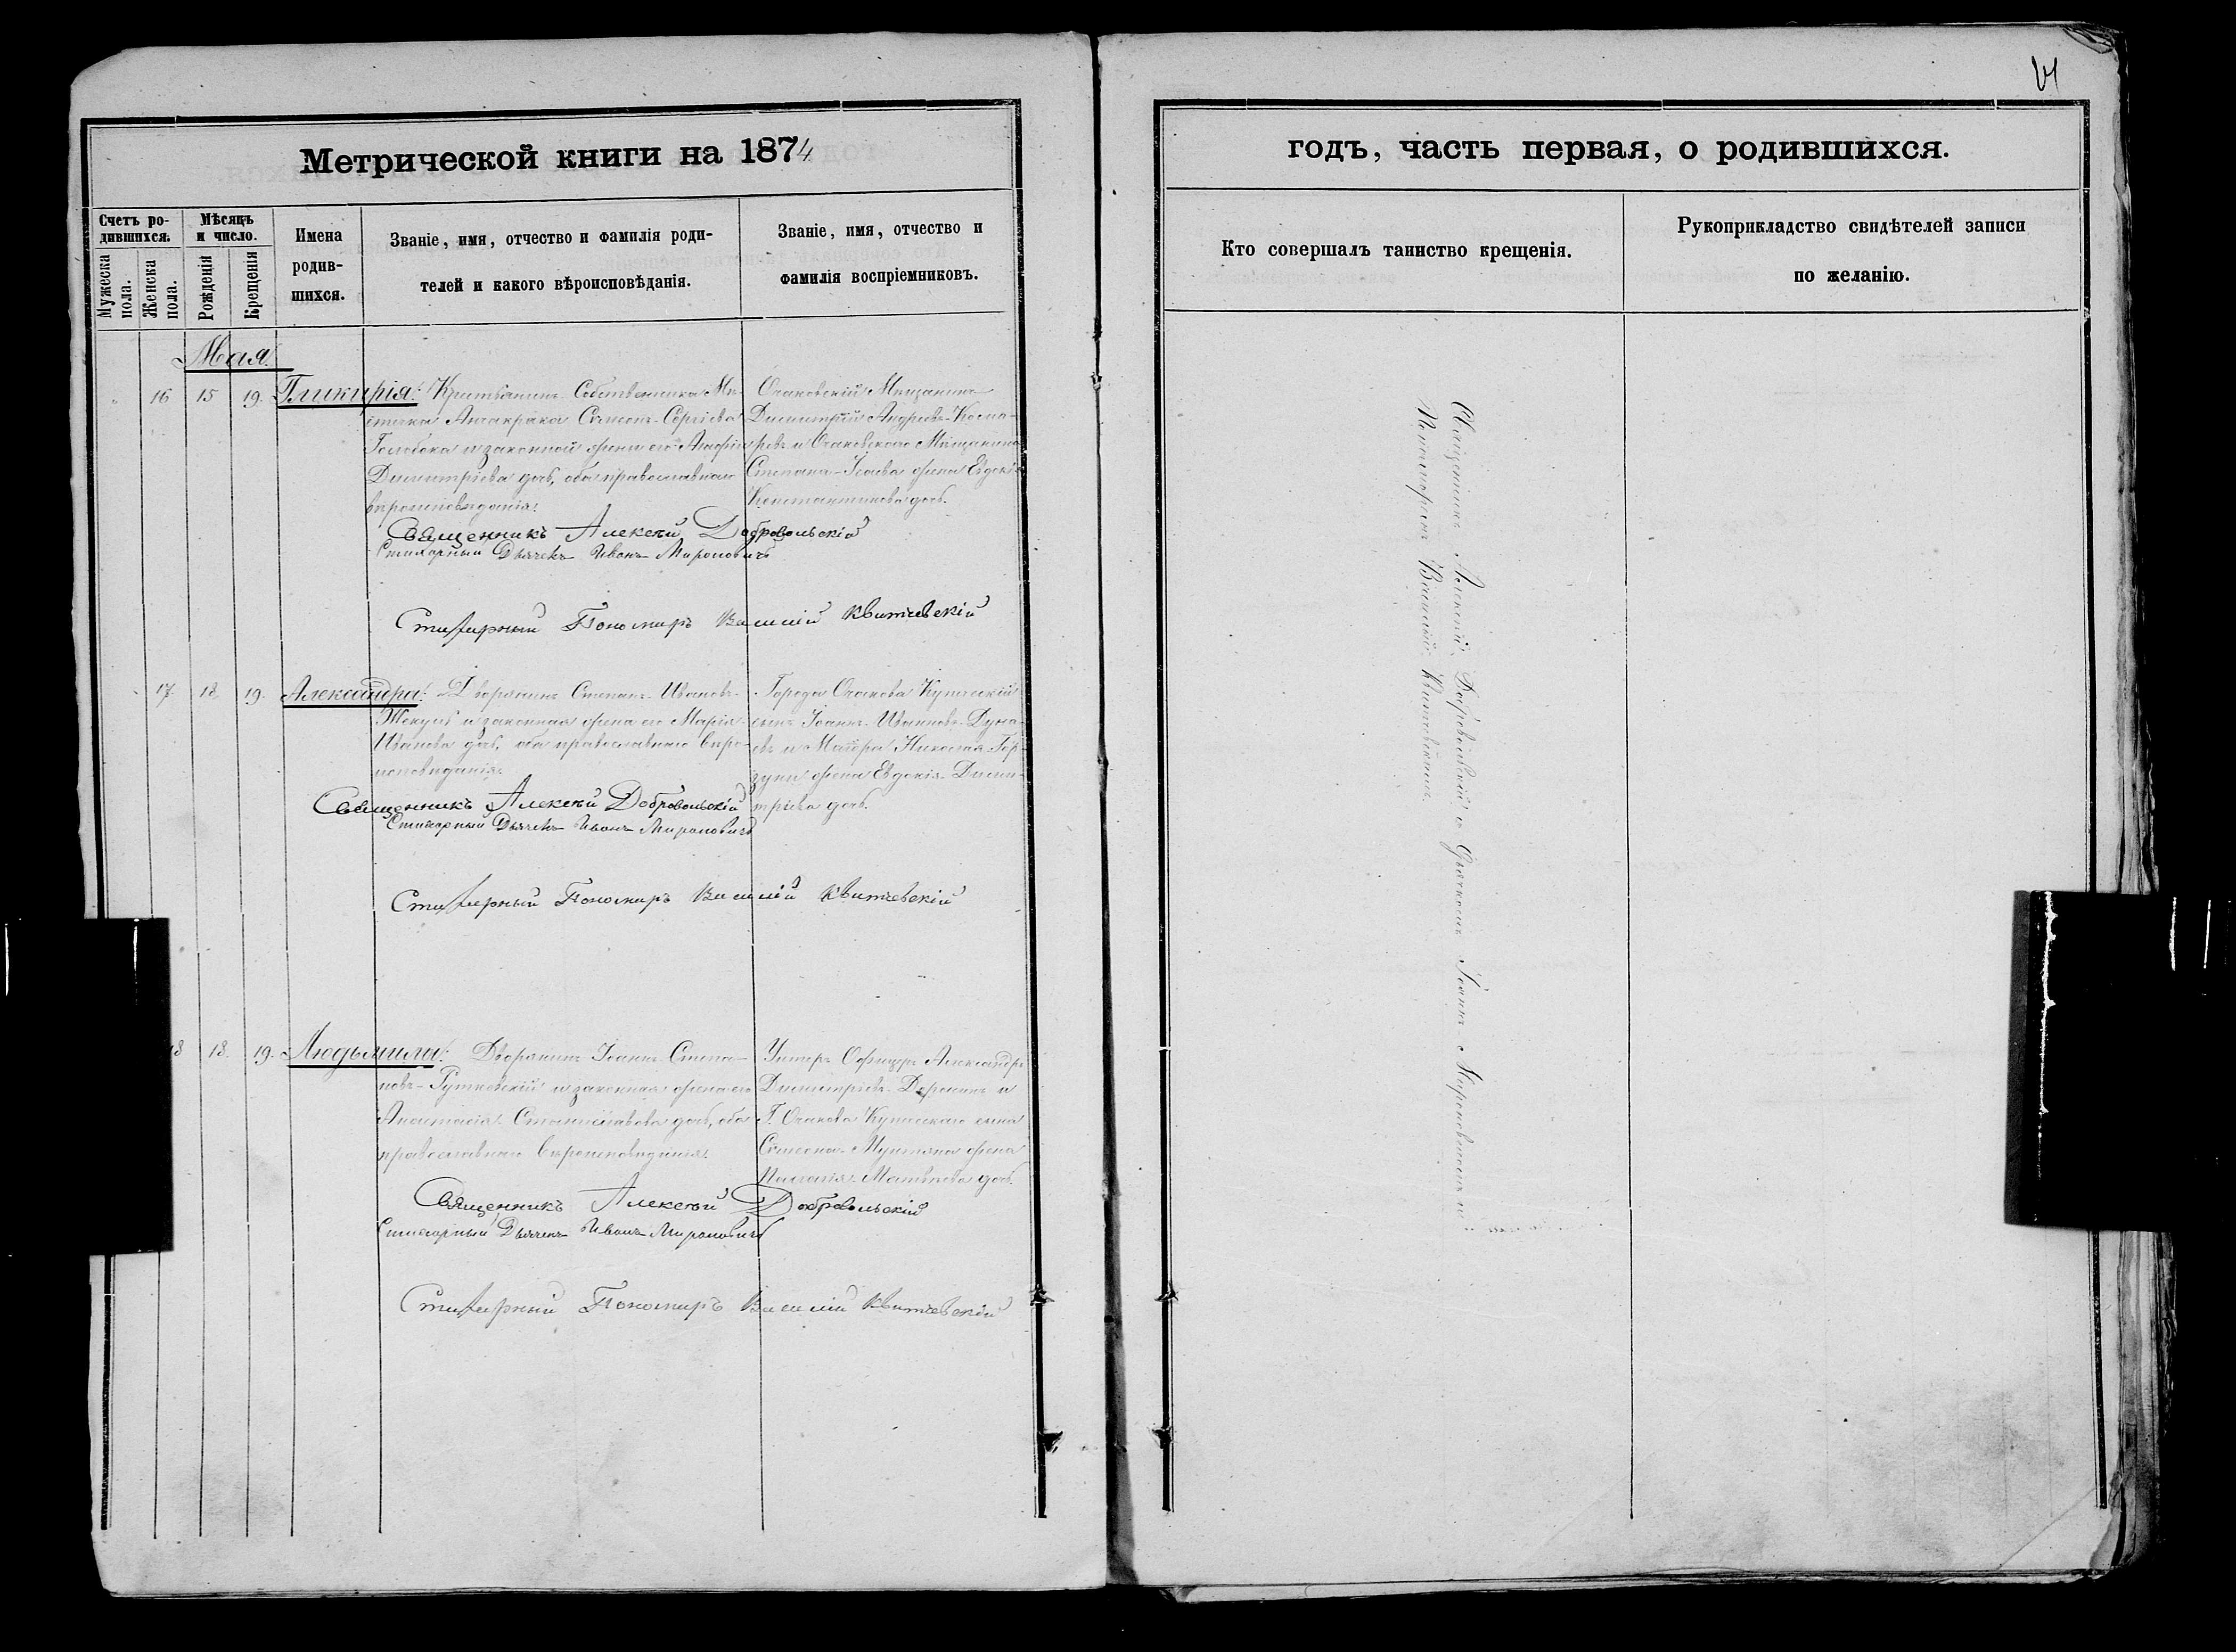 Метрической книги на 1874
Счетъ ро-
дившихся.
Мужеска
пола.
Женска
пола.
Мѣсяцъ
и число.
Рожденія
Крещенія
Имена
родив-
шихся.
Званіе, имя, отчество и фамилія роди-
телей и какого вѣроисповѣданія.
Званіе, имя, отчество и
фамилія воспріемниковъ.
Мая.
16 15 19. Гликирія.
Собственника
Семенъ Сергіева
и законной жены его Агафіи
Димитріева дочь, оба православнаго
вѣроисповѣданія.
Очаковскій Мѣщанинъ
Димитрій Андреевъ
и Очаковскаго Мѣщанина
Степана жена Евдокія
Константинова дочь.
Священникъ Алексѣй Добровольскій
Стихарный Дьячекъ Иванъ Мироновичъ
Стихарный Пономаръ Василій Квитчевскій
17. 18. 19. Александра.
Дворянинъ Степанъ Ивановъ
и законная жена его Марія
Иванова дочь, оба православнаго вѣро-
исповѣданія.
Города Очакова Купеческій
сынъ Іоаннъ Ивановъ
и Маіора Николая Гор-
жена Евдокія Дими-
тріева дочь.
Священникъ Алексѣй Добровольскій
Стихарный Дьячекъ Иванъ Мироновичъ
Стихарный Пономаръ Василій Квитчевскій
18 18. 19. Людьмила.
Дворянинъ Іоаннъ Степа-
новъ Рутковскій и законная жена его
Анастасія Станиславова дочь, оба
православнаго вѣроисповѣданія.
Унтеръ Офицеръ Александръ
Димитріевъ и
Г. Очакова Купеческаго сына
Семена жена
Пелагія Матвѣева дочь.
Священникъ Алексѣй Добровольскій
Стихарный Дьячекъ Иванъ Мироновичъ
Стихарный Пономаръ Василій Квитчевскій
годъ, часть первая, о родившихся.
Кто совершалъ таинство крещенія.
Рукоприкладство свидѣтелей записи
по желанію.
Священникъ Алексѣй Добровольскій съ Дьячкомъ Іоанн. Мироновичемъ и
Пономаремъ Василіемъ Квитчевскимъ.